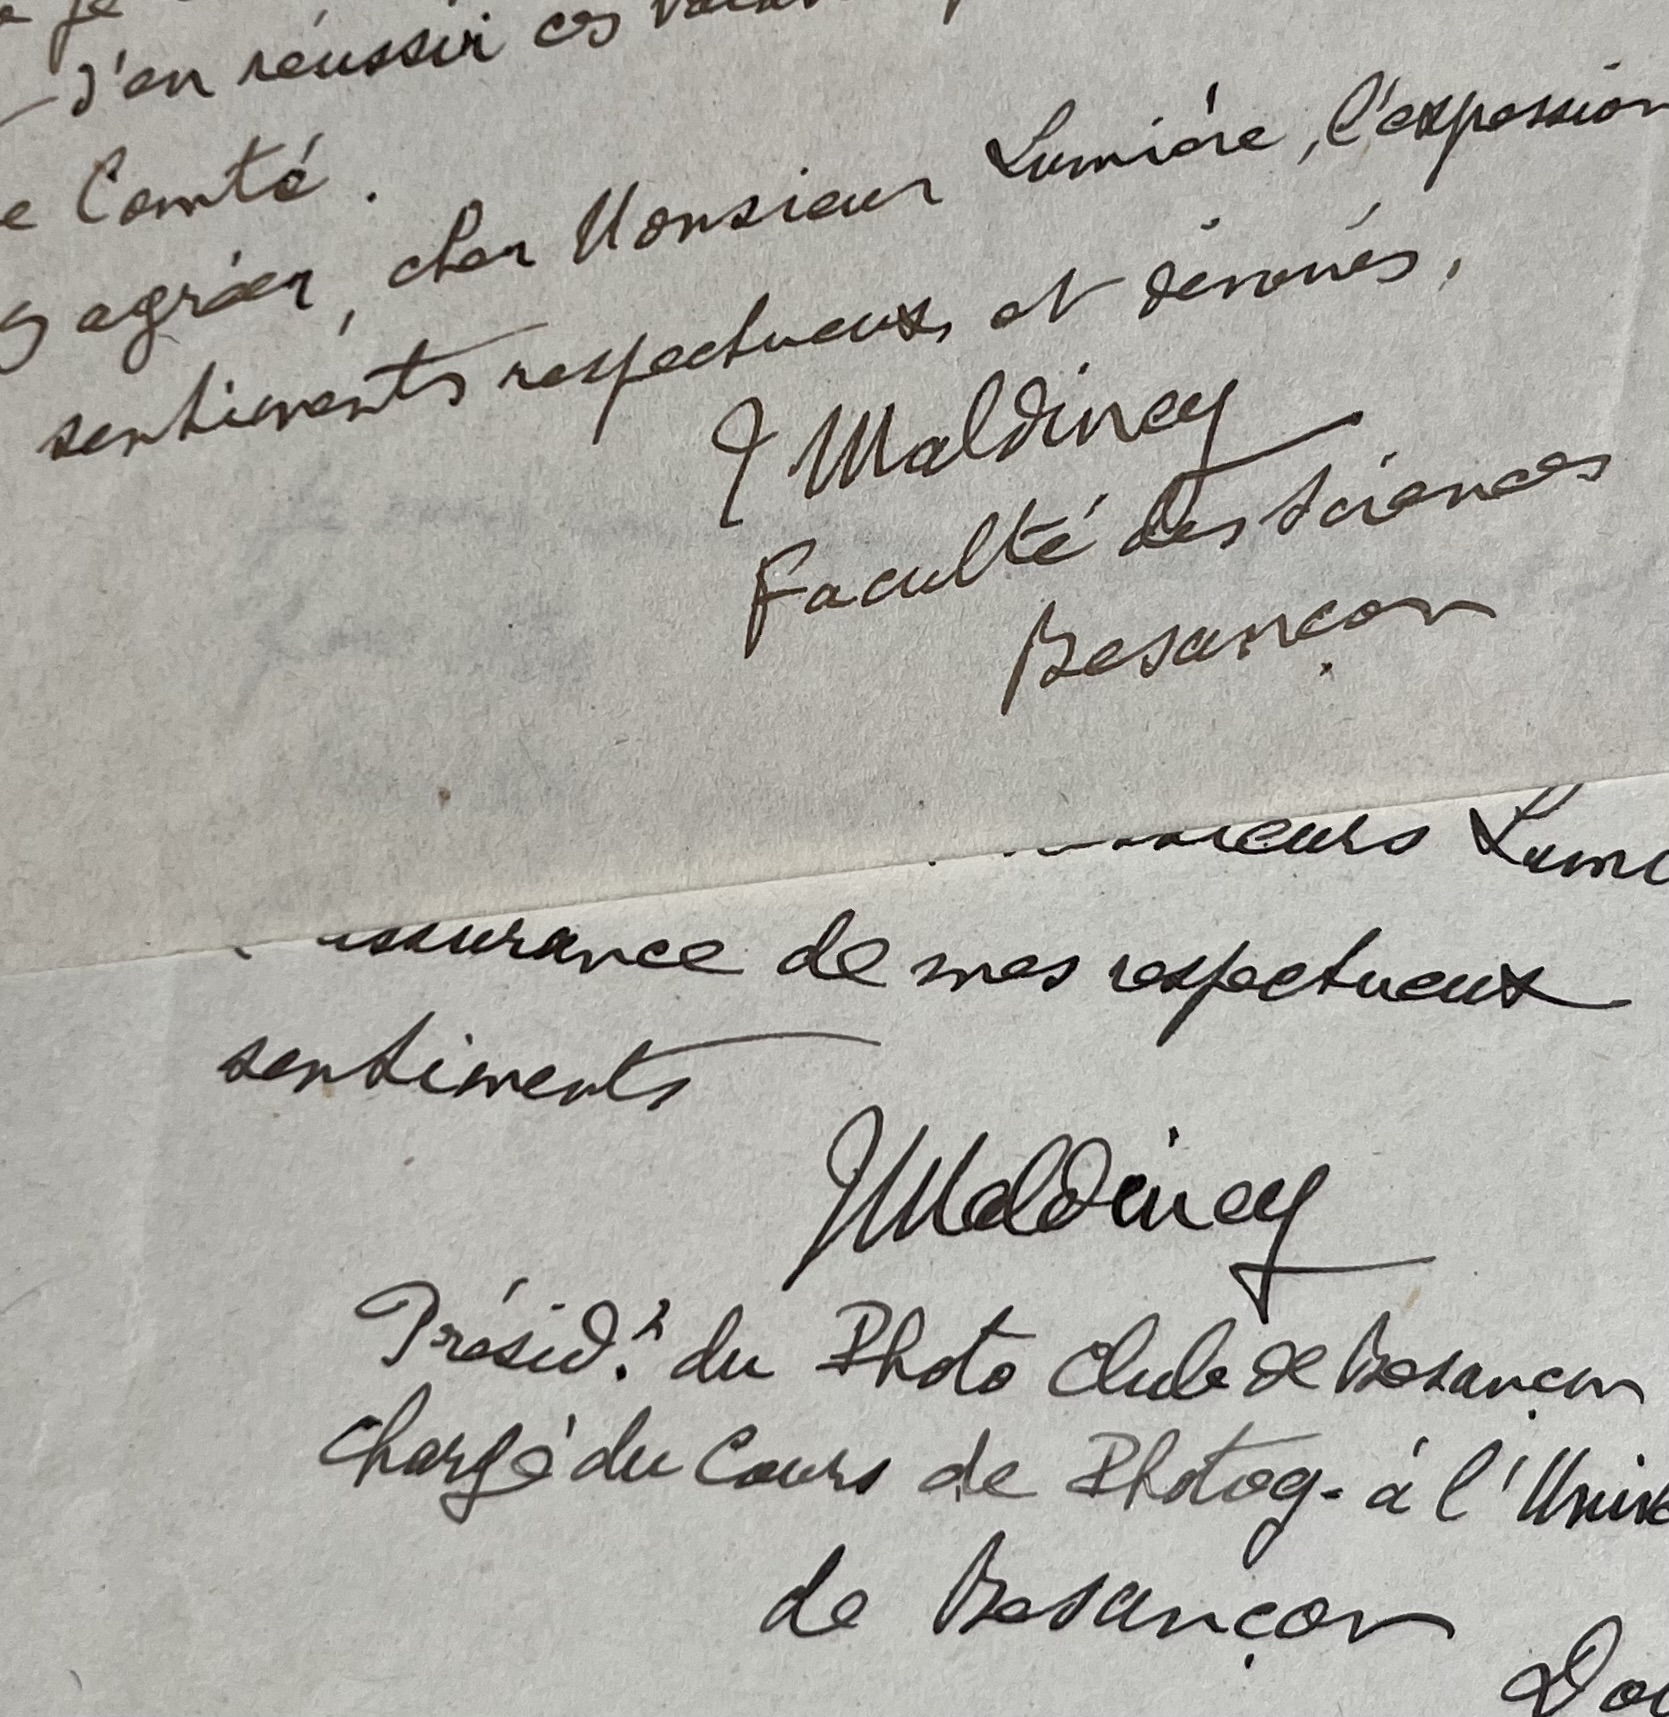 J'en réussir ces
Comté.
agréer, cher Monsieur Lumière, l'expession
sentiments respectueux et dévoués,
J Maldiney
Faculté des Sciences
Besançon
Lumi
assurance de mes respectueux
sentiments
JMaldiney
Présid.t du Photo Club de Besançon
Chargé du Cours de Photog- à l'Unive
de Besançon
Dou